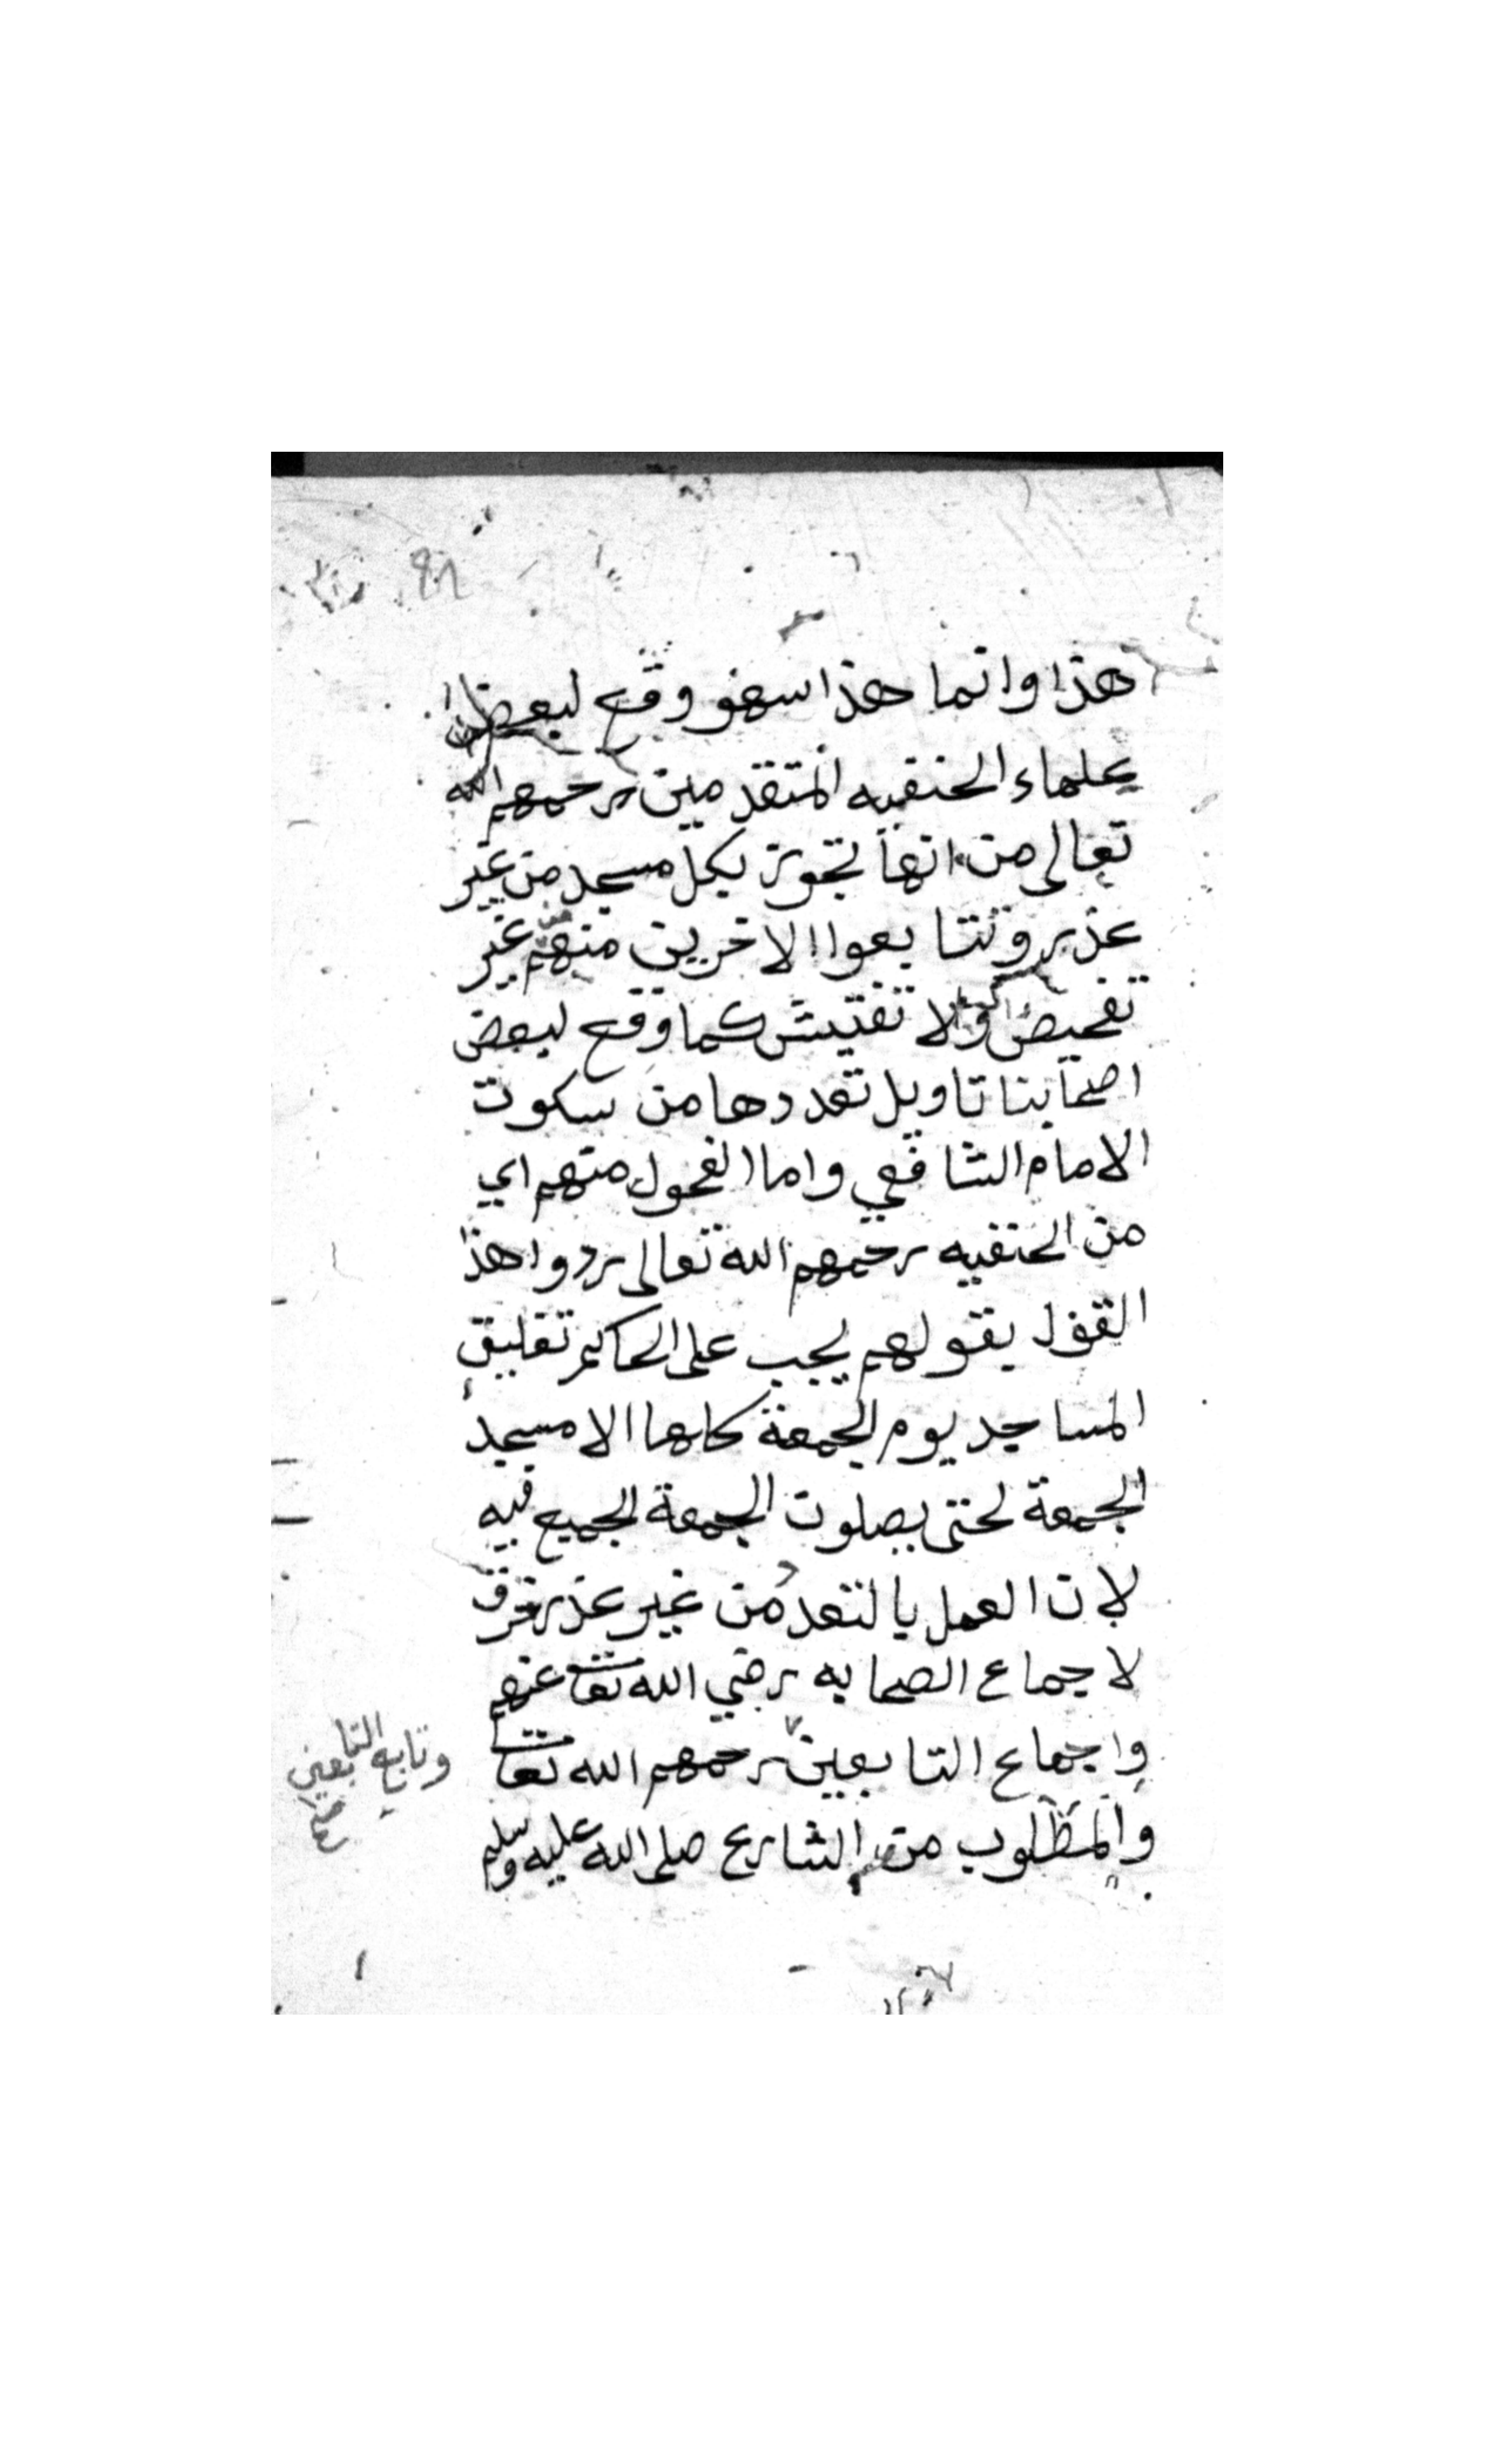 هذا وانما هذا سهو وقع لبعض
علماء الحنفيه المتقدمين رحمهم الله
تعالى من انها تجوز بكل مسجد من غير
عذر وتتابعوا الاخرين منهم من غير
تفحيص ولا تفتيش كما وقع لبعض
اصحابنا تاويل تعددها من سكوت
الامام الشافعي واما الفحول منهم اي
من الحنفيه رحمهم الله تعالى ردوا هذا
القول بقولهم يجب على الحاكم تغليق
المساجد يوم الجمعة كلها الا مسجد
الجمعة لحتى يصلون الجمعة الجميع فيه
لان العمل بالتعدد من غير عذر خرق
لاجماع الصحابه رضي الله تعا عنهم
واجماع التابعين رحمهم الله تعا
وتابع التابعين
والمطلوب من الشارع صلى الله عليه وسلم